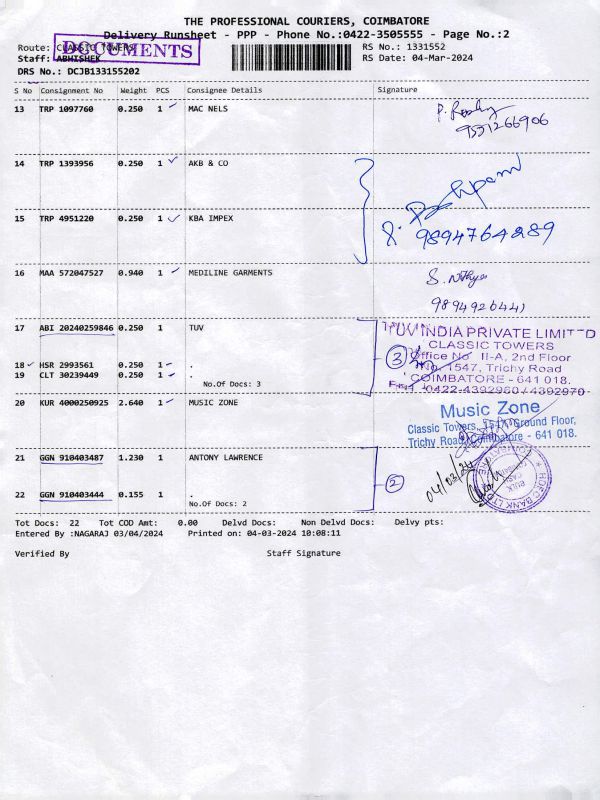 THE PROFESSIONAL COURIERS, COIMBATORE
Delivery Runsheet - PPP - Phone No.:0422-3505555 - Page No.:2
Route: CLASSIC TOWERS
DOCUMENTS
RS No.: 1331552
Staff: ABHISHEK
RS Date: 04-Mar-2024
DRS No.: DCJB133155202
S No Consignment No Weight PCS Consignee Details Signature
13 TRP 1097760 0.250 1 MAC NELS
9551266906
14 TRP 1393956 0.250 1 AKB & CO
15 TRP 4951220 0.250 1 KBA IMPEX
9894764289
16 MAA 572047527 0.940 1 MEDILINE GARMENTS
S. Nithya
9894926441
17 ABI 20240259846 0.250 1 TUV
TUV INDIA PRIVATE LIMITED
CLASSIC TOWERS
Office No II-A, 2nd Floor
No. 1547, Trichy Road
COIMBATORE - 641 018.
0422-4392960 / 4392970
3
18 HSR 2993561 0.250 1 .
19 CLT 30239449 0.250 1 .
No.Of Docs: 3
20 KUR 4000250925 2.640 1 MUSIC ZONE
Music Zone
Classic Towers, 1547, Ground Floor,
Trichy Road, Coimbatore - 641 018.
21 GGN 910403487 1.230 1 ANTONY LAWRENCE
2
04/03/24
HDFC BANK LTD
22 GGN 910403444 0.155 1 .
No.Of Docs: 2
Tot Docs: 22 Tot COD Amt: 0.00 Delvd Docs: Non Delvd Docs: Delvy pts:
Entered By :NAGARAJ 03/04/2024 Printed on: 04-03-2024 10:08:11
Verified By Staff Signature